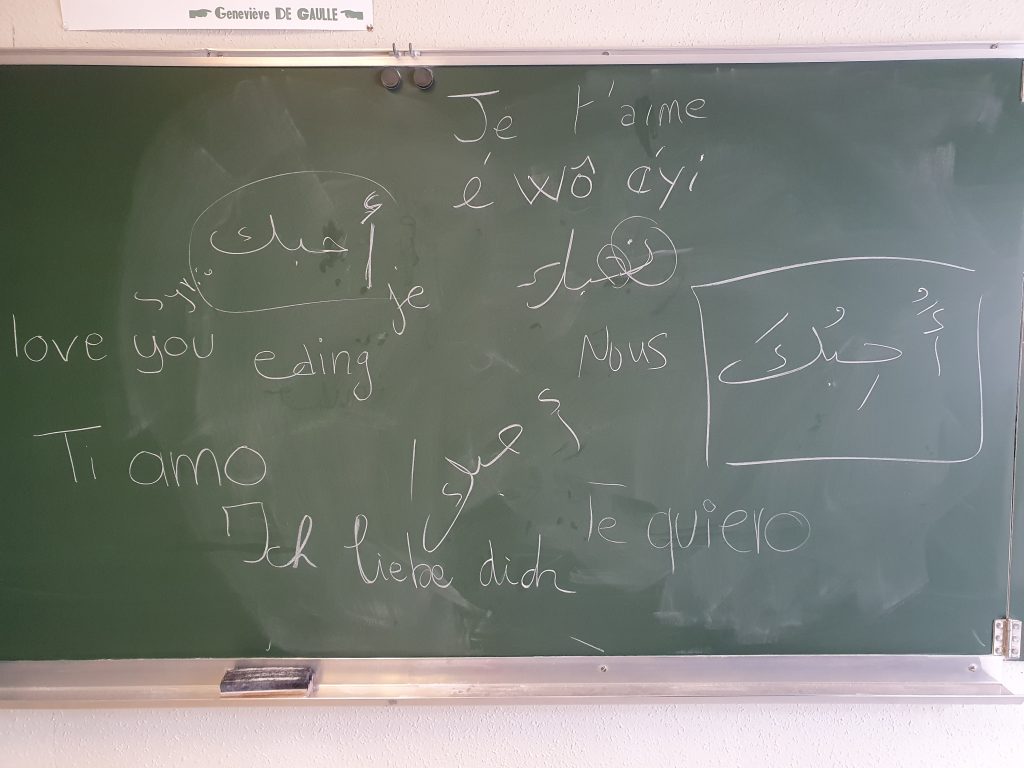 Geneviève DE GAULLE
Je t'aime
é wô éyi
أحبك
je
Nous
أُحِبُكَ
love you
eding
Ti amo
Te quiero
Ich liebe dich